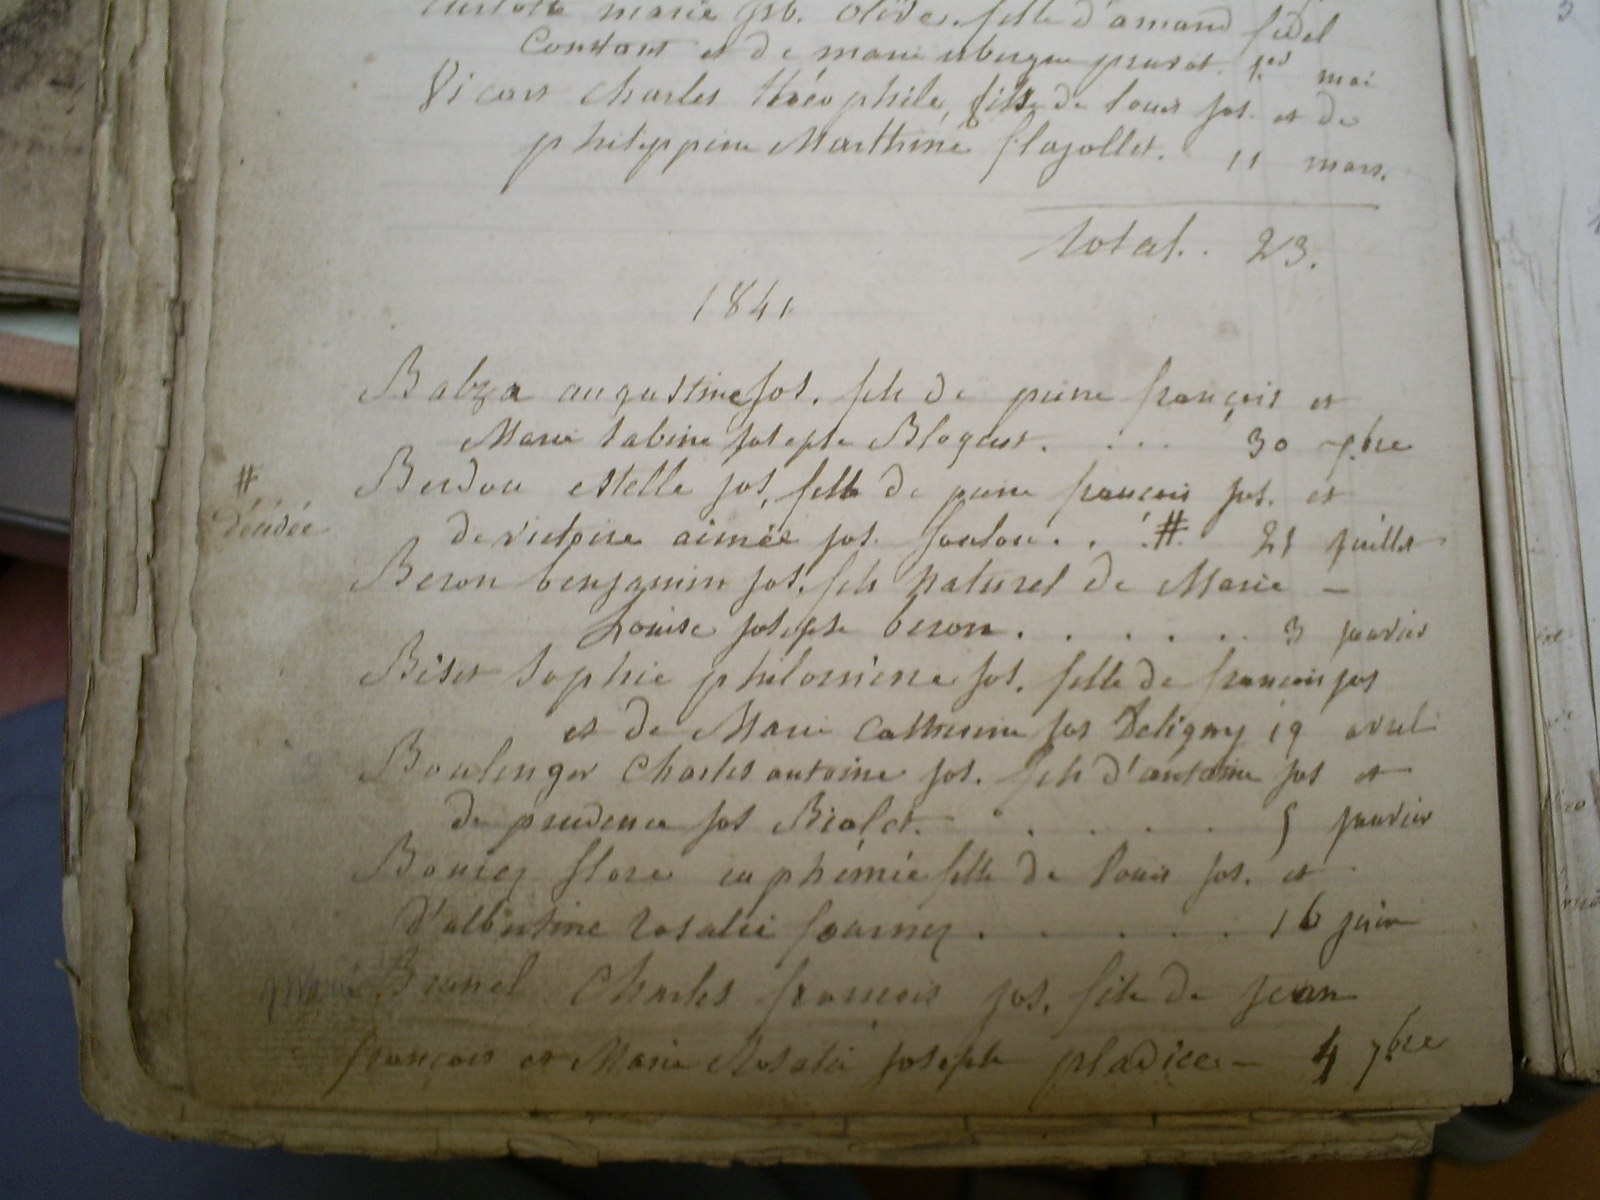 marie jph. Olive. fille d'amand fidel
Constant et de marie pruvot. 1er mai
Vicart Charles théophile, fils de Louis jos. et de
philippine Marthine flajollet. 11 mars.
total.. 23.
1841
Balza augustine jos. fils de pierre françois et
Marie Sabine joseph Blogeur. . . . 30 7bre
# Berdou estelle jos, fille de pierre francois jos. et
décédée de victoire aimée jos. foulou . . # 21 juillet
Beron benjamin jos. fils naturel de Marie -
Louise joseph beron . . . . . . 3 janvier
Biset Sophie philomène jos. fille de francois jos
et de Marie Catherine jos Deligny 19 avril
Boulenger Charles antoine jos. fils d'antoine jos et
de prudence jos Bialet. . . . . 5 janvier
Bourez flore euphémie fille de Louis jos. et
d'albertine rosalie fournez . . . . . 16 juin
Brunel Charles francois jos. fils de jean
francois et Marie Rosalie joseph pladice - 4 7bre